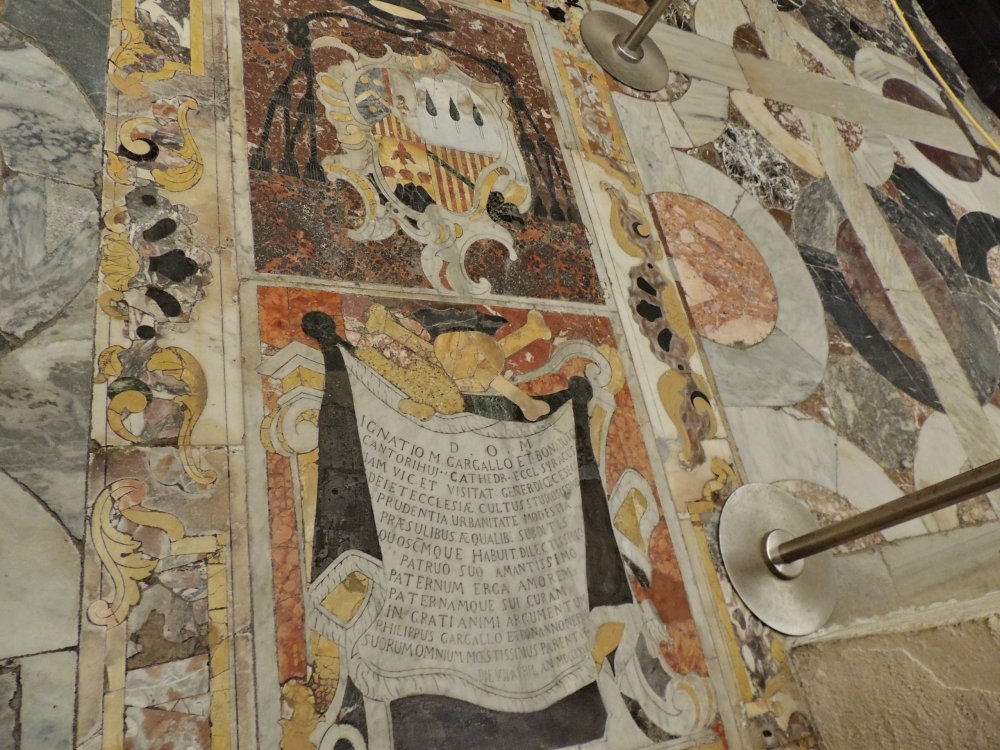 D. O. M.
IGNATIO M. GARGALLO ET BONANNO
CANTORI HUJ. CATHEDR. ECCL. SYRAC.
JAM VIC. ET VISITAT. GENER. DIGCESI
DEI ET ECCLESIÆ CULTUS STUDIO
PRUDENTIA URBANITATE MODESTIA
PRÆSULIBUS ÆQUALIB. SUBDITIS
QUOSCMQUE HABUIT DILECTISSIMO
PATRUO SUO AMANTISSIMO
PATERNUM ERGA AMOREM
PATERNAMQUE SUI CURAM
IN GRATI ANIMI ARGUMENTU
PHILIPPUS GARGALLO ET BONANNO NEP.
SUORUM OMNIUM MŒSTISSIMUS PARENTA
DIE